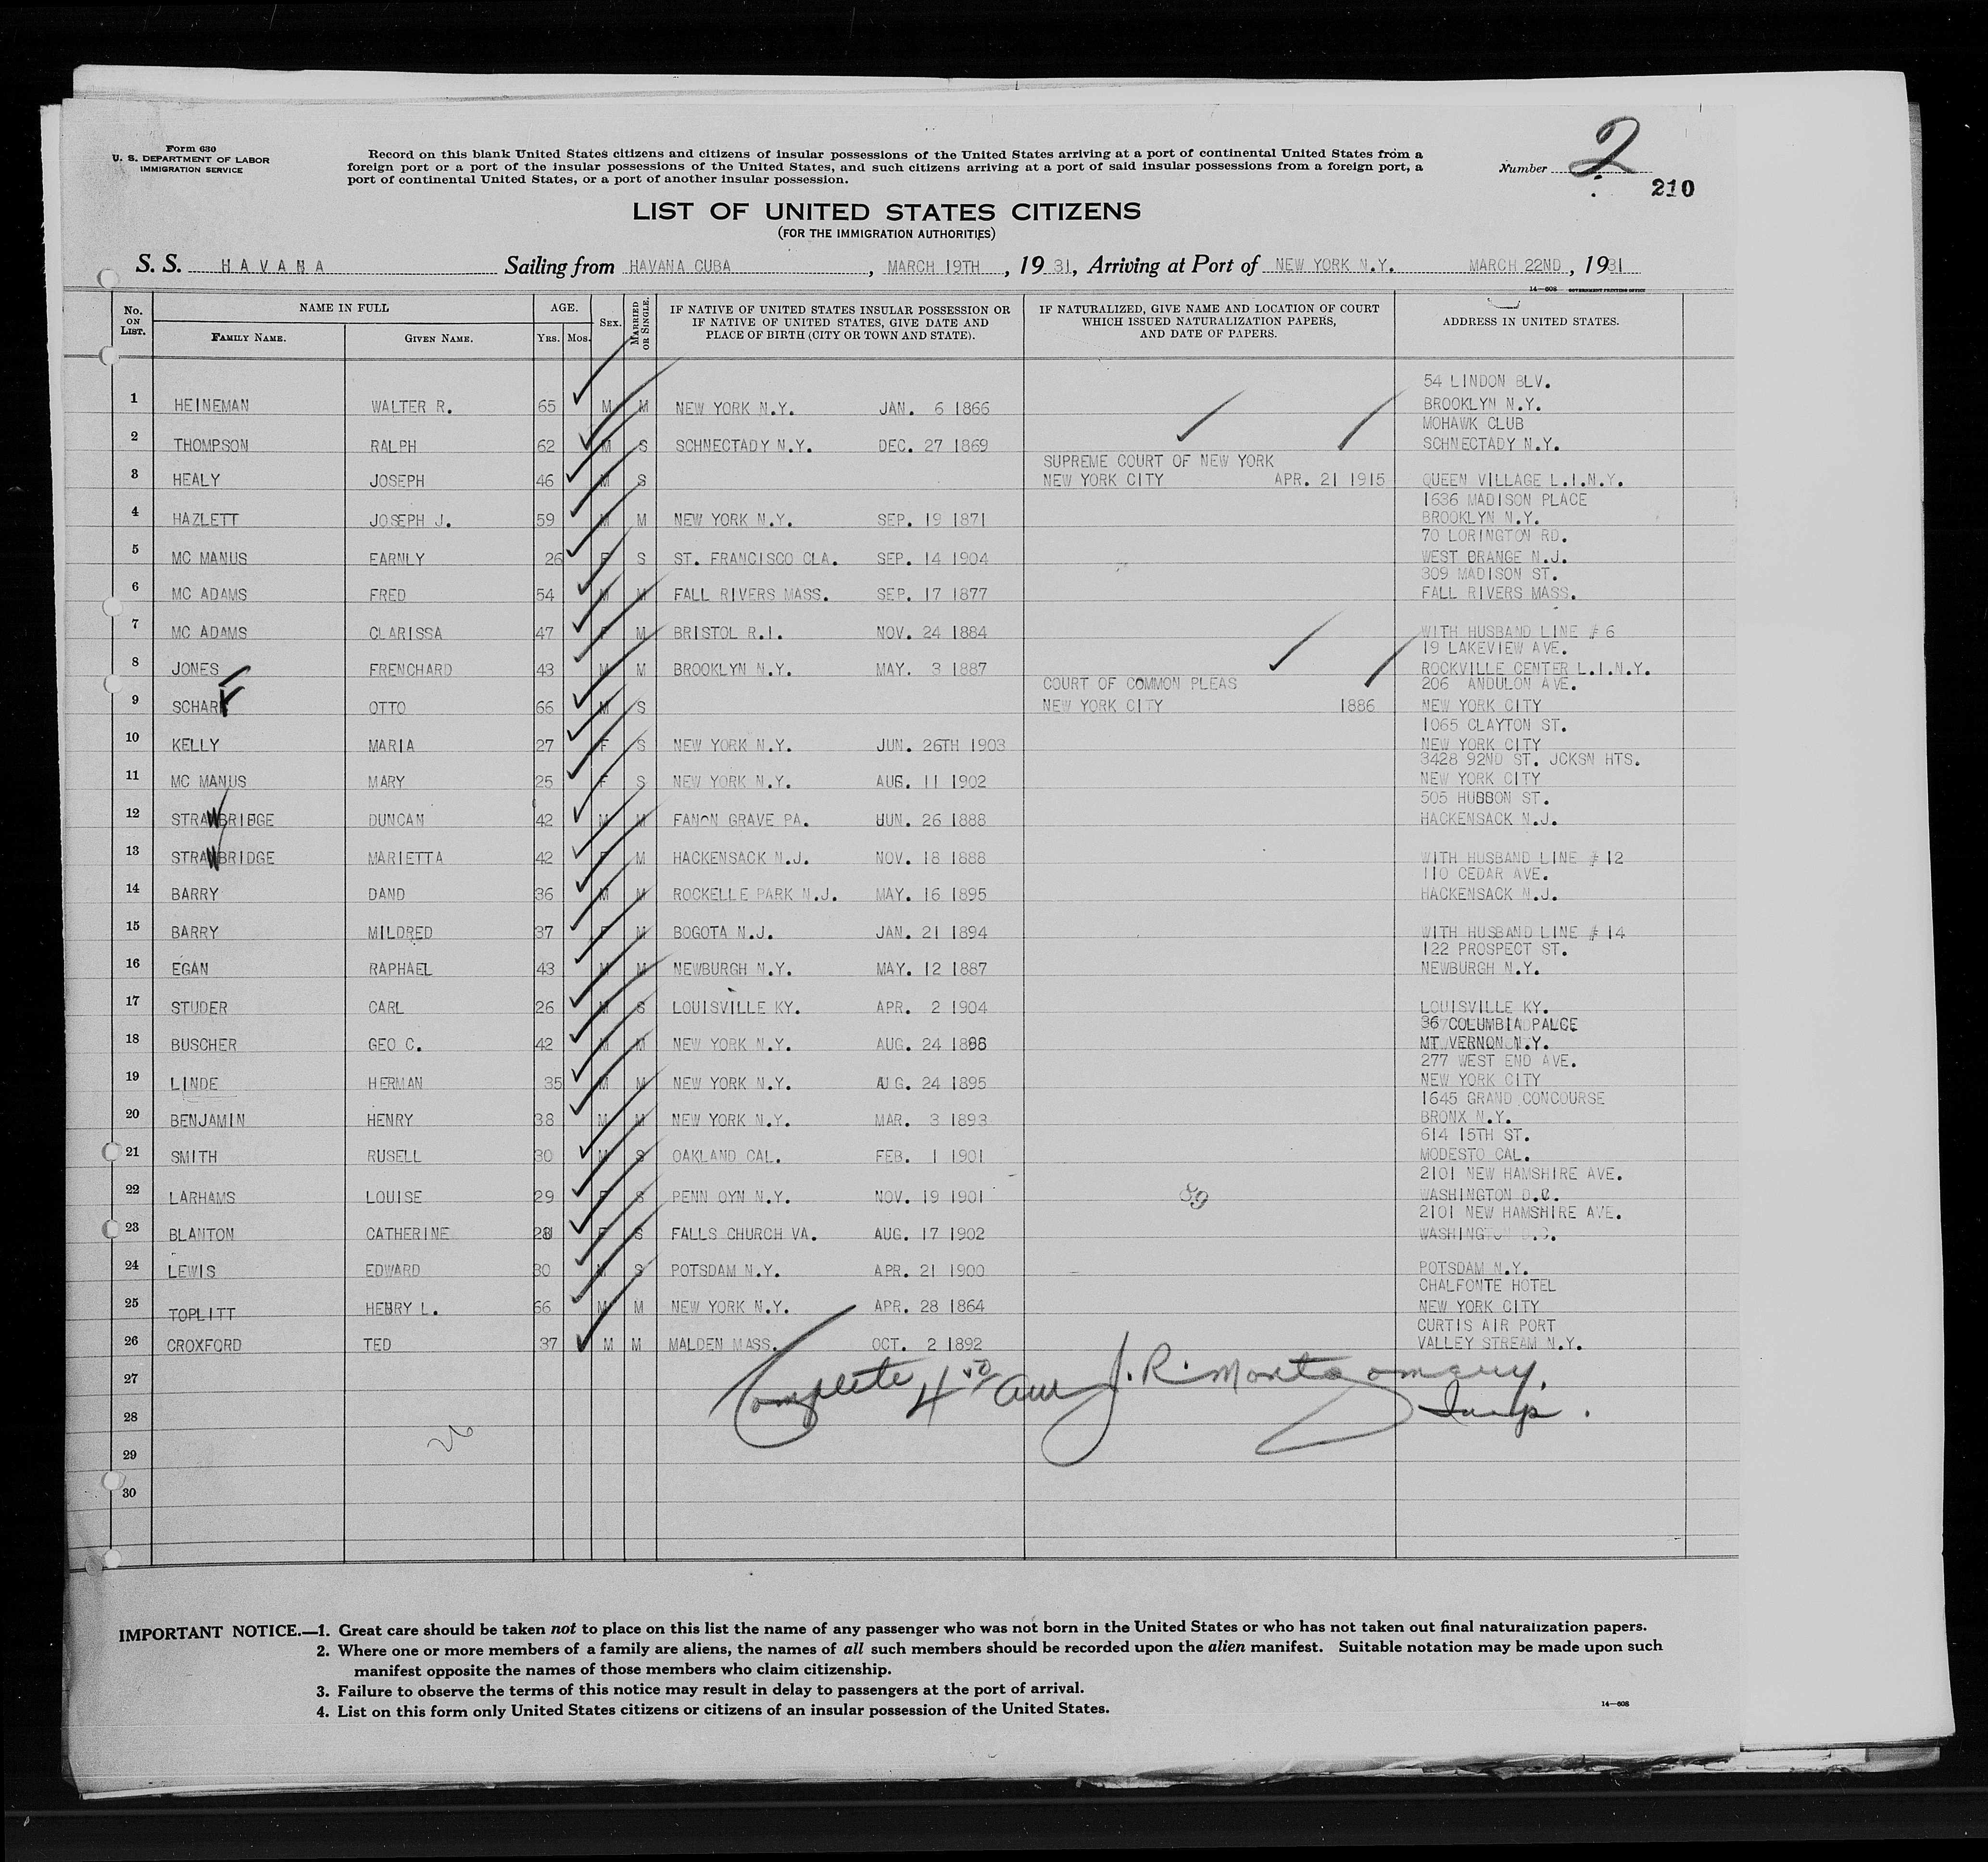 Form 630
U. S. DEPARTMENT OF LABOR
IMMIGRATION SERVICE
Record on this blank United States citizens and citizens of insular possessions of the United States arriving at a port of continental United States from a
foreign port or a port of the insular possessions of the United States, and such citizens arriving at a port of said insular possessions from a foreign port, a
port of continental United States, or a port of another insular possession.
Number 2
210
LIST OF UNITED STATES CITIZENS
(FOR THE IMMIGRATION AUTHORITIES)
S. S. HAVANA Sailing from HAVANA CUBA, MARCH 19TH, 1931, Arriving at Port of NEW YORK N.Y. MARCH 22ND, 1931
14—608 GOVERNMENT PRINTING OFFICE
No. ON LIST. NAME IN FULL FAMILY NAME. GIVEN NAME. AGE. YRS. MOS. SEX. MARRIED OR SINGLE. IF NATIVE OF UNITED STATES INSULAR POSSESSION OR IF NATIVE OF UNITED STATES, GIVE DATE AND PLACE OF BIRTH (CITY OR TOWN AND STATE). IF NATURALIZED, GIVE NAME AND LOCATION OF COURT WHICH ISSUED NATURALIZATION PAPERS, AND DATE OF PAPERS. ADDRESS IN UNITED STATES.
54 LINDON BLV.
1 HEINEMAN WALTER R. 65 M M NEW YORK N.Y. JAN. 6 1866 BROOKLYN N.Y.
MOHAWK CLUB
2 THOMPSON RALPH 62 M S SCHNECTADY N.Y. DEC. 27 1869 SCHNECTADY N.Y.
SUPREME COURT OF NEW YORK
3 HEALY JOSEPH 46 M S NEW YORK CITY APR. 21 1915 QUEEN VILLAGE L.I.N.Y.
1636 MADISON PLACE
4 HAZLETT JOSEPH J. 59 M M NEW YORK N.Y. SEP. 19 1871 BROOKLYN N.Y.
70 LORINGTON RD.
5 MC MANUS EARNLY 26 F S ST. FRANCISCO CLA. SEP. 14 1904 WEST ORANGE N.J.
309 MADISON ST.
6 MC ADAMS FRED 54 M M FALL RIVERS MASS. SEP. 17 1877 FALL RIVERS MASS.
7 MC ADAMS CLARISSA 47 F M BRISTOL R.I. NOV. 24 1884 WITH HUSBAND LINE # 6
19 LAKEVIEW AVE.
8 JONES FRENCHARD 43 M M BROOKLYN N.Y. MAY. 3 1887 ROCKVILLE CENTER L.I.N.Y.
COURT OF COMMON PLEAS 206 ANDULON AVE.
9 SCHARF OTTO 66 M S NEW YORK CITY 1886 NEW YORK CITY
1065 CLAYTON ST.
10 KELLY MARIA 27 F S NEW YORK N.Y. JUN. 26TH 1903 NEW YORK CITY
3428 92ND ST. JCKSN HTS.
11 MC MANUS MARY 25 F S NEW YORK N.Y. AUG. 11 1902 NEW YORK CITY
505 HUBBON ST.
12 STRAWBRIDGE DUNCAN 42 M M FANON GRAVE PA. JUN. 26 1888 HACKENSACK N.J.
13 STRAWBRIDGE MARIETTA 42 F M HACKENSACK N.J. NOV. 18 1888 WITH HUSBAND LINE # 12
110 CEDAR AVE.
14 BARRY DAND 36 M M ROCKELLE PARK N.J. MAY. 16 1895 HACKENSACK N.J.
15 BARRY MILDRED 37 F M BOGOTA N.J. JAN. 21 1894 WITH HUSBAND LINE # 14
122 PROSPECT ST.
16 EGAN RAPHAEL 43 M M NEWBURGH N.Y. MAY. 12 1887 NEWBURGH N.Y.
17 STUDER CARL 26 M S LOUISVILLE KY. APR. 2 1904 LOUISVILLE KY.
36 COLUMBIA PALCE
18 BUSCHER GEO C. 42 M M NEW YORK N.Y. AUG. 24 MT VERNON N.Y.
277 WEST END AVE.
19 LINDE HERMAN 35 M M NEW YORK N.Y. AUG. 24 1895 NEW YORK CITY
1645 GRAND CONCOURSE
20 BENJAMIN HENRY 38 M M NEW YORK N.Y. MAR. 3 1893 BRONX N.Y.
614 15TH ST.
21 SMITH RUSELL 30 M S OAKLAND CAL. FEB. 1 1901 MODESTO CAL.
2101 NEW HAMSHIRE AVE.
22 LARHAMS LOUISE 29 F S PENN OYN N.Y. NOV. 19 1901 89 WASHINGTON D.C.
2101 NEW HAMSHIRE AVE.
23 BLANTON CATHERINE 28 F S FALLS CHURCH VA. AUG. 17 1902 WASHINGTON D.C.
24 LEWIS EDWARD 30 M S POTSDAM N.Y. APR. 21 1900 POTSDAM N.Y.
CHALFONTE HOTEL
25 TOPLITT HENRY L. 66 M M NEW YORK N.Y. APR. 28 1864 NEW YORK CITY
CURTIS AIR PORT
26 CROXFORD TED 37 M M MALDEN MASS. OCT. 2 1892 VALLEY STREAM N.Y.
27 Complete J. R. Montgomery,
28 Insp.
29 26
30
IMPORTANT NOTICE.—1. Great care should be taken not to place on this list the name of any passenger who was not born in the United States or who has not taken out final naturalization papers.
2. Where one or more members of a family are aliens, the names of all such members should be recorded upon the alien manifest. Suitable notation may be made upon such
manifest opposite the names of those members who claim citizenship.
3. Failure to observe the terms of this notice may result in delay to passengers at the port of arrival.
4. List on this form only United States citizens or citizens of an insular possession of the United States.
14—608